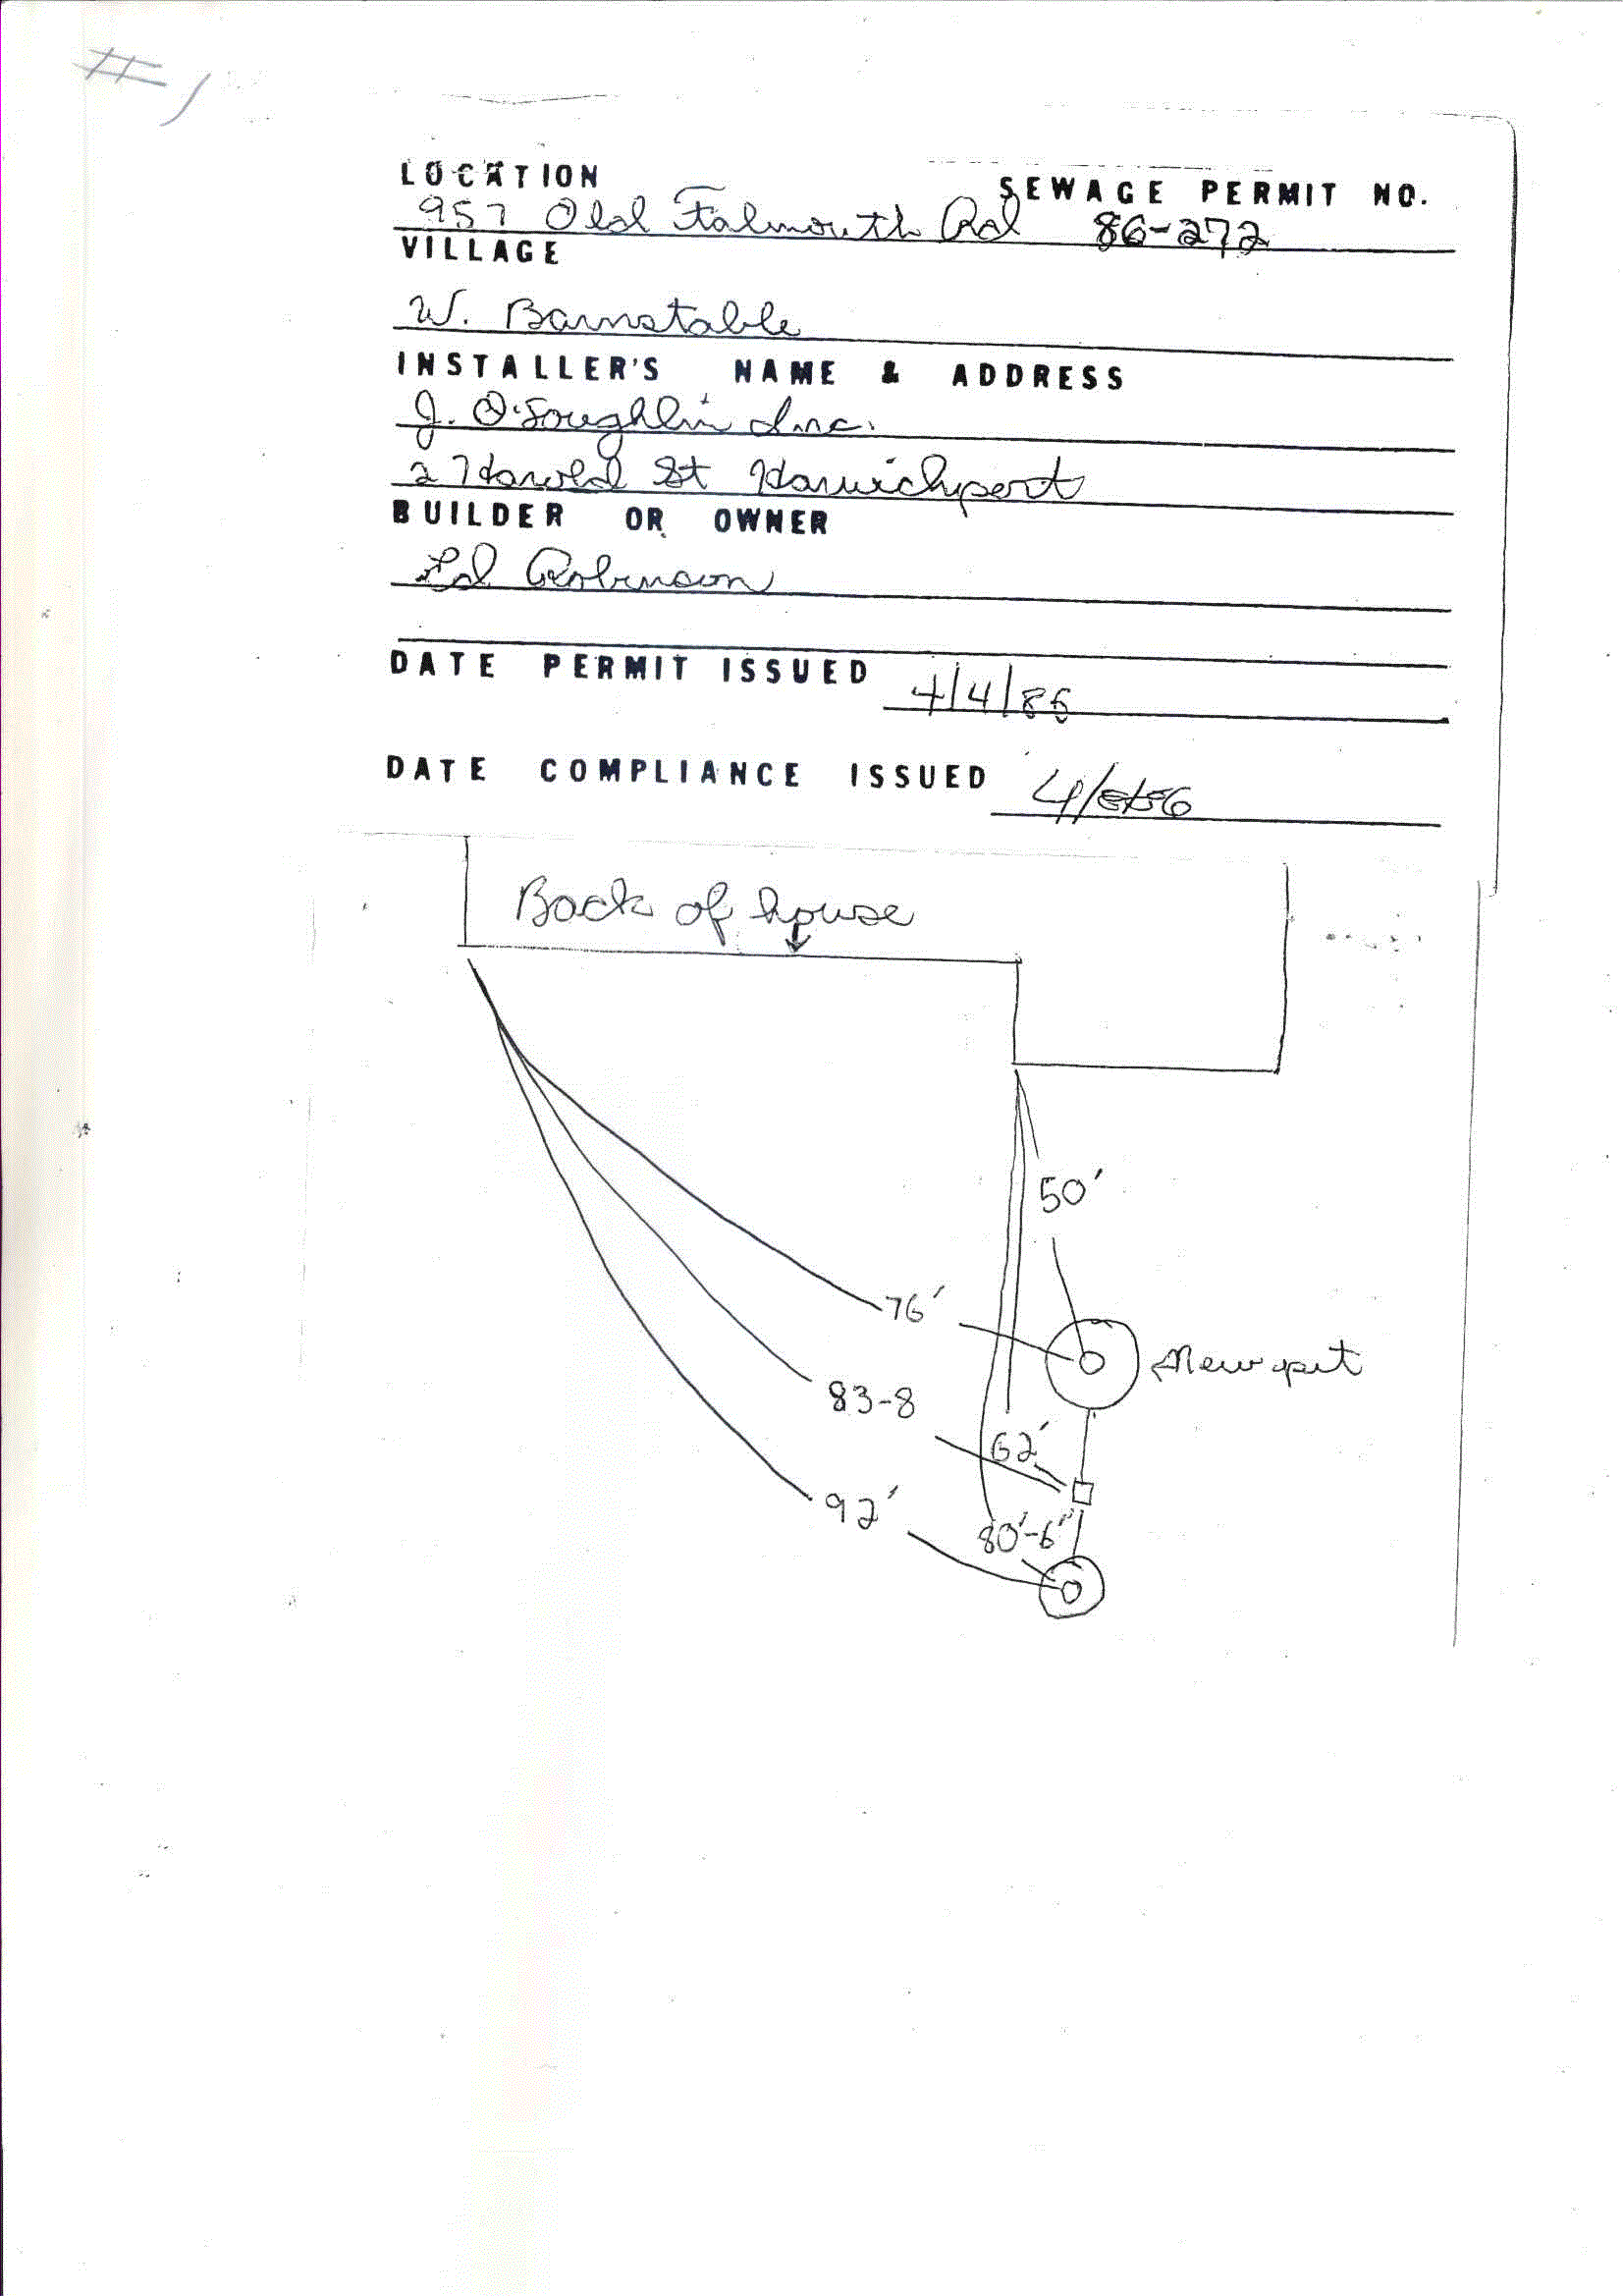 # 1
LOCATION SEWAGE PERMIT NO.
957 Old Falmouth Rd 86-272
VILLAGE
W. Barnstable
INSTALLER'S NAME & ADDRESS
J. O'Loughlin Inc.
2 Harold St Harwichport
BUILDER OR OWNER
Ed Robinson
DATE PERMIT ISSUED 4/4/86
DATE COMPLIANCE ISSUED
Back of house
50'
76'
New pit
83-8
62'
92'
80'-6"